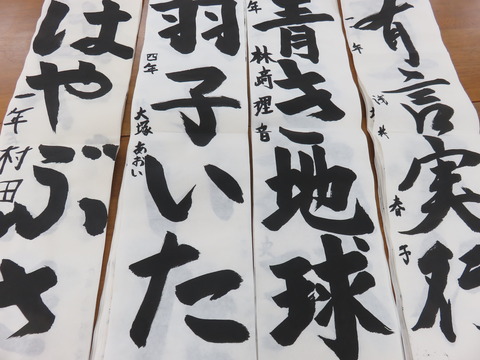 有言実行
一年 春子
青き地球
年 林崎理音
羽子いた
四年 大塚あおい
はやぶさ
一年 村田